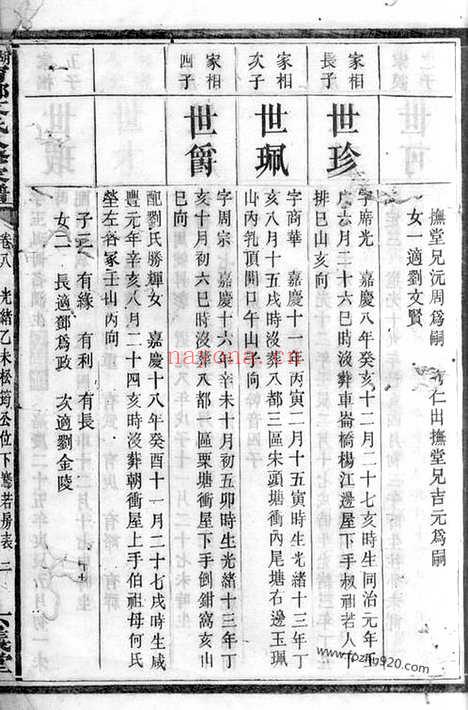 撫堂兄沅周爲嗣 仁出撫堂兄吉元爲嗣
女一適劉文賢
家相
長子
世珍
字席光 嘉慶八年癸亥十二月二十七亥時生同治元年壬
六月二十六巳時沒葬車崙橋楊江邊屋下手叔祖若人下
排巳山亥向
家相
次子
世珮
字商華 嘉慶十一年丙寅二月十五寅時生光緒十三年丁
亥八月十五戌時沒葬八都三區宋頭塘衝內尾塘右邊玉珮
山內乳頂開口午山子向
家相
四子
世爵
字周宗 嘉慶十六年辛未十月初五卯時生光緒十三年丁
亥十月初六巳時沒葬八都一區栗塘衝屋下手倒鉗窩亥山
巳向
配劉氏勝輝女 嘉慶十八年癸酉十一月二十七戌時生咸
豐元年辛亥八月二十四亥時沒葬朝衝屋上手伯祖母何氏
塋左各冢壬山丙向
子三 有緣 有利 有長
女二 長適鄧爲政 次適劉金陵
卷八 光緒乙未松筠公位下騫若房表 二
nabona.cn
www.fozhu920.com